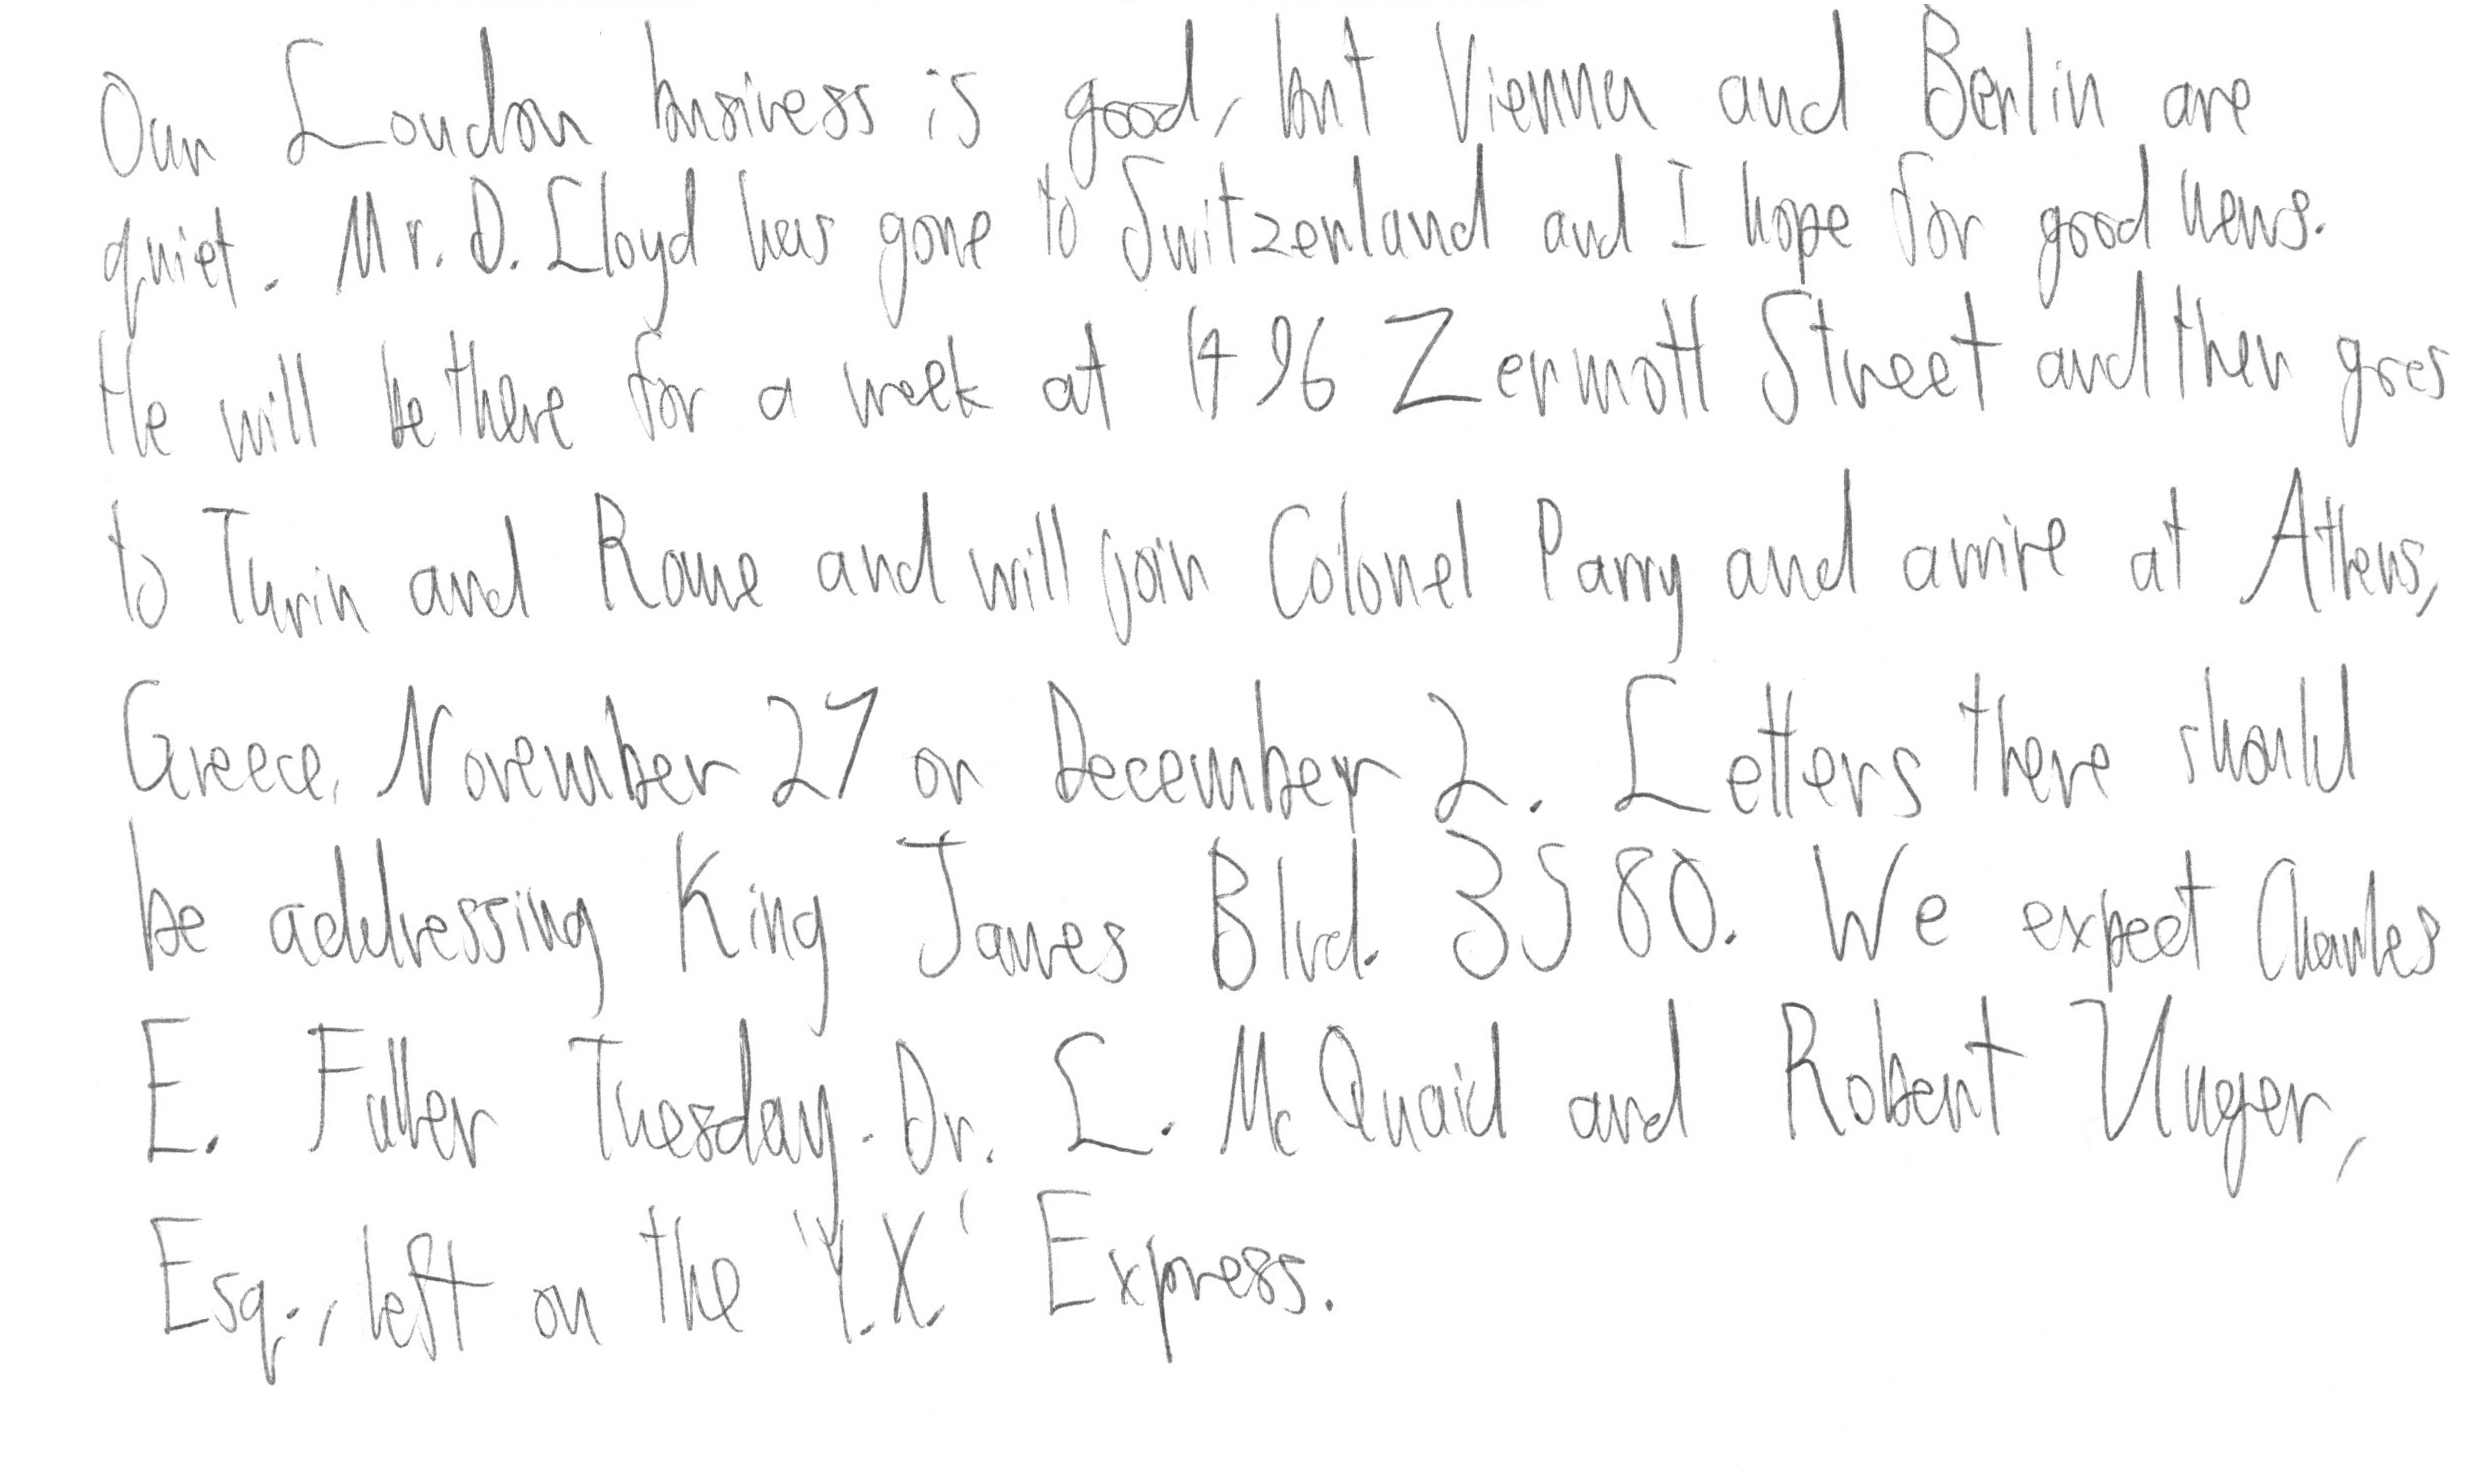 Our London business is good, but Vienna and Berlin are
quiet. Mr. D. Lloyd has gone to Switzerland and I hope for good news.
He will be there for a week at 1496 Zermott Street and then goes
to Turin and Rome and will join Colonel Parry and arrive at Athens,
Greece, November 27 or December 2. Letters there should
be addressing King James Blvd. 3580. We expect Charles
E. Fuller Tuesday. Dr. L. Mc Quaid and Robert Unger,
Esq., left on the 'Y.X.' Express.